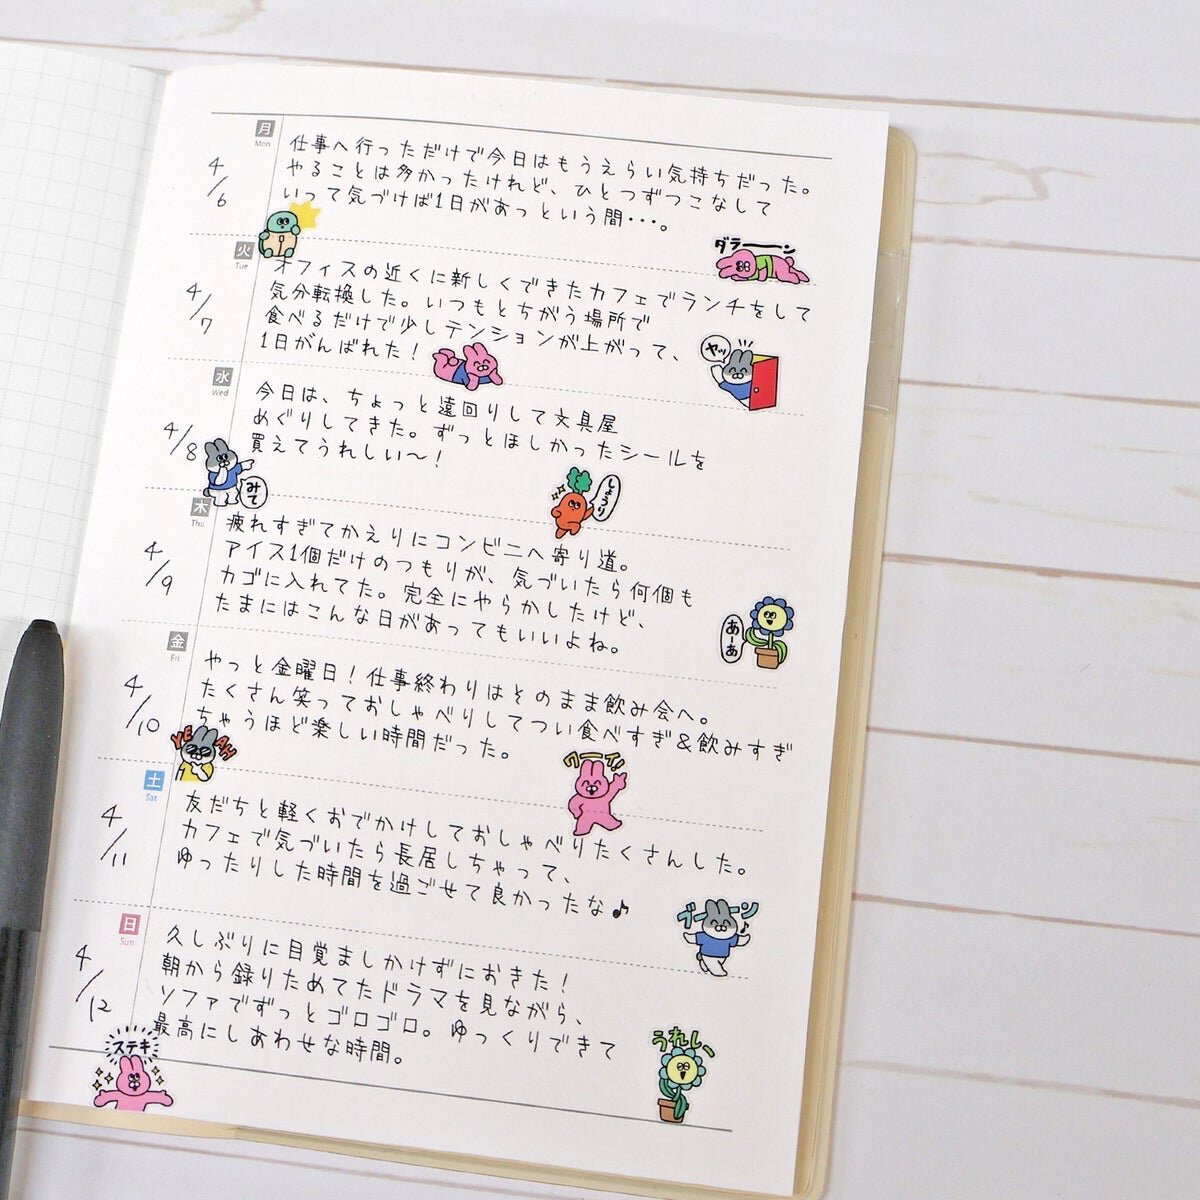 月
Mon
4/6
仕事へ行っただけで今日はもうえらい気持ちだった。
やることは多かったけれど、ひとつずつこなして
いって気づけば1日があっという間・・・。
ダラーーン
火
Tue
4/7
オフィスの近くに新しくできたカフェでランチをして
気分転換した。いつもとちがう場所で
食べるだけで少しテンションが上がって、
1日がんばれた！
ヤッ
水
Wed
4/8
今日は、ちょっと遠回りして文具屋
めぐりしてきた。ずっとほしかったシールを
買えてうれしい〜！
みて
しょうり
木
Thu
4/9
疲れすぎてかえりにコンビニへ寄り道。
アイス1個だけのつもりが、気づいたら何個も
カゴに入れてた。完全にやらかしたけど、
たまにはこんな日があってもいいよね。
あーあ
金
Fri
4/10
やっと金曜日！仕事終わりはそのまま飲み会へ。
たくさん笑っておしゃべりしてつい食べすぎ&飲みすぎ
ちゃうほど楽しい時間だった。
YEAH
ワーイ!
土
Sat
4/11
友だちと軽くおでかけしておしゃべりたくさんした。
カフェで気づいたら長居しちゃって、
ゆったりした時間を過ごせて良かったな♪
ブーーン
日
Sun
4/12
久しぶりに目覚ましかけずにおきた！
朝から録りためてたドラマを見ながら、
ソファでずっとゴロゴロ。ゆっくりできて
最高にしあわせな時間。
ステキ
うれしい